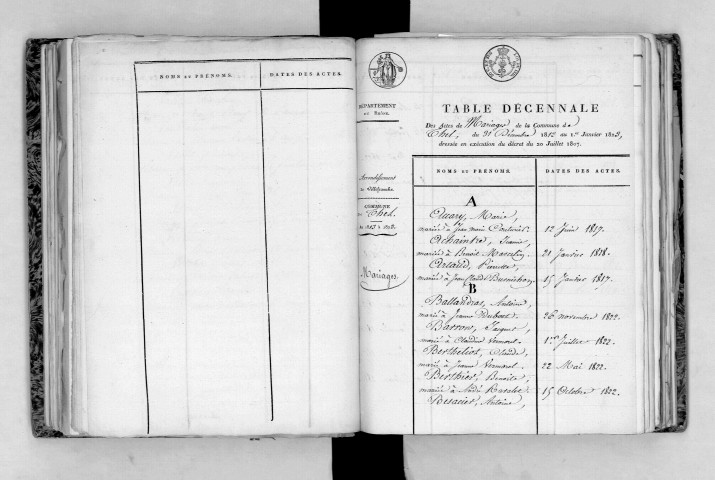 NOMS ET PRÉNOMS.
DATES DES ACTES.
DÉPARTEMENT
DU RHÔNE.
Arrondissement
de Villefranche.
COMMUNE
de Thel.
de 1813 à 1822.
Mariages.
TABLE DÉCENNALE
Des Actes de Mariages de la Commune de
Thel, du 31 Décembre 1812 au 1.er Janvier 1823,
dressée en exécution du décret du 20 Juillet 1807.
NOMS ET PRÉNOMS.
DATES DES ACTES.
A
Marie,
mariée à Jean marie 12 Juin 1817.
Achaintre,
mariée à Benoit 21 Janvier 1818.
Artaud, Pierrette,
mariée à Jean Claude 15 Janvier 1817.
B
Ballandras, Antoine,
marié à Jeanne 26 novembre 1822.
Jacques,
marié à Claudine Vermorel. 1.er Juillet 1822.
Bertheliot, Claude,
marié à Jeanne Vermorel. 22 Mai 1822.
Berthier, Benoite,
mariée à André 15 Octobre 1822.
Besacier, Antoine,